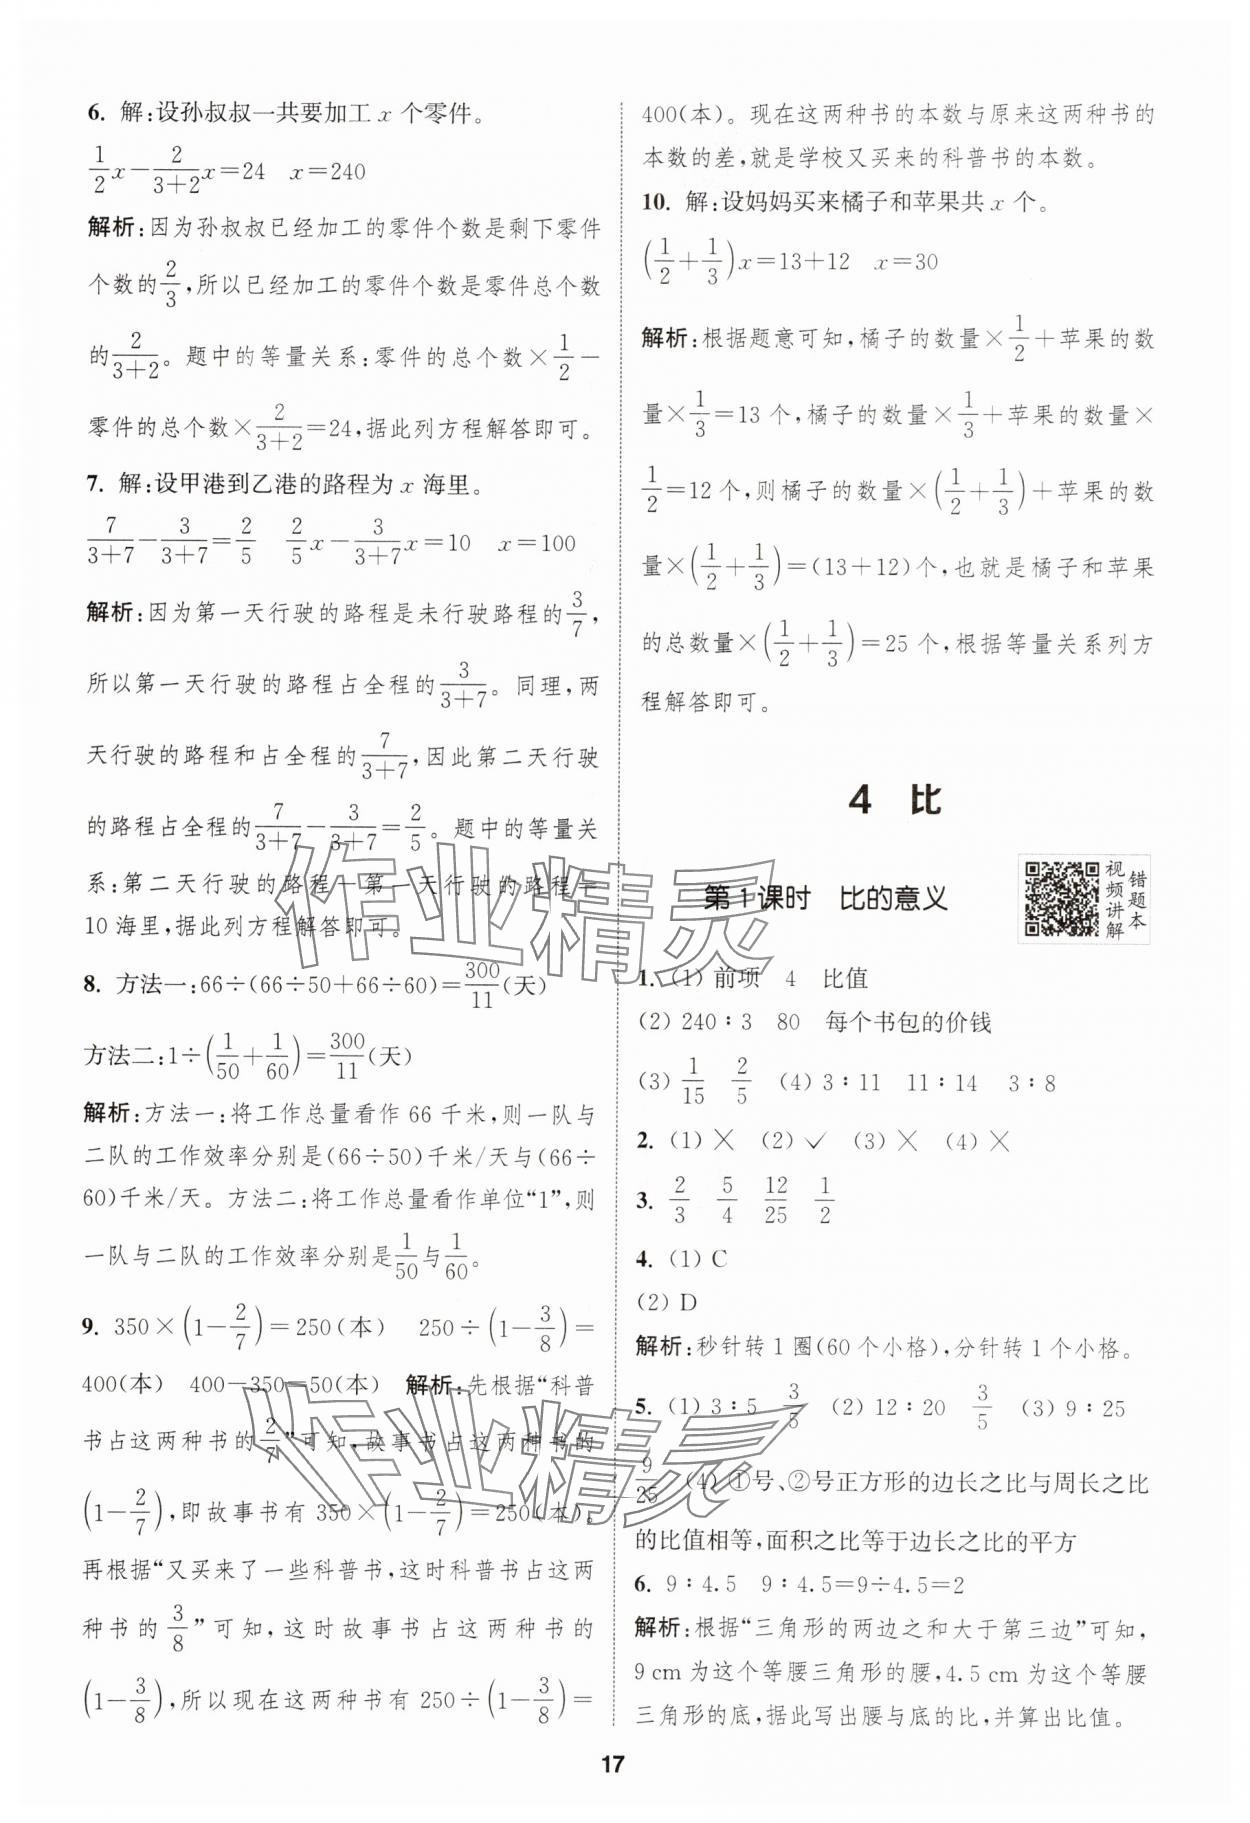 6. 解:设孙叔叔一共要加工 x 个零件。
1/2x－2/(3+2)x=24　x=240
解析:因为孙叔叔已经加工的零件个数是剩下零件
个数的2/3,所以已经加工的零件个数是零件总个数
的2/(3+2)。题中的等量关系:零件的总个数×1/2－
零件的总个数×2/(3+2)=24,据此列方程解答即可。
7. 解:设甲港到乙港的路程为 x 海里。
7/(3+7)－3/(3+7)=2/5　2/5x－3/(3+7)x=10　x=100
解析:因为第一天行驶的路程是未行驶路程的3/7,
所以第一天行驶的路程占全程的3/(3+7)。同理,两
天行驶的路程和占全程的7/(3+7),因此第二天行驶
的路程占全程的7/(3+7)－3/(3+7)=2/5。题中的等量关
系:第二天行驶的路程－第一天行驶的路程=
10 海里,据此列方程解答即可。
8. 方法一:66÷(66÷50+66÷60)=300/11(天)
方法二:1÷(1/50+1/60)=300/11(天)
解析:方法一:将工作总量看作 66 千米,则一队与
二队的工作效率分别是(66÷50)千米/天与(66÷
60)千米/天。方法二:将工作总量看作单位“1”,则
一队与二队的工作效率分别是1/50与1/60。
9. 350×(1－2/7)=250(本)　250÷(1－3/8)=
400(本)　400－350=50(本)　解析:先根据“科普
书占这两种书的2/7”可知,故事书占这两种书的
(1－2/7),即故事书有 350×(1－2/7)=250(本)。
再根据“又买来了一些科普书,这时科普书占这两
种书的3/8”可知,这时故事书占这两种书的
(1－3/8),所以现在这两种书有 250÷(1－3/8)=
400(本)。现在这两种书的本数与原来这两种书的
本数的差,就是学校又买来的科普书的本数。
10. 解:设妈妈买来橘子和苹果共 x 个。
(1/2+1/3)x=13+12　x=30
解析:根据题意可知,橘子的数量×1/2+苹果的数
量×1/3=13 个,橘子的数量×1/3+苹果的数量×
1/2=12 个,则橘子的数量×(1/2+1/3)+苹果的数
量×(1/2+1/3)=(13+12)个,也就是橘子和苹果
的总数量×(1/2+1/3)=25 个,根据等量关系列方
程解答即可。
4　比
第 1 课时　比的意义
视频讲解
错题本
1. (1) 前项　4　比值
(2) 240∶3　80　每个书包的价钱
(3) 1/15　2/5　(4) 3∶11　11∶14　3∶8
2. (1) ×　(2) √　(3) ×　(4) ×
3. 2/3　5/4　12/25　1/2
4. (1) C
(2) D
解析:秒针转 1 圈(60 个小格),分针转 1 个小格。
5. (1) 3∶5　3/5　(2) 12∶20　3/5　(3) 9∶25
9/25　(4) ①号、②号正方形的边长之比与周长之比
的比值相等,面积之比等于边长之比的平方
6. 9∶4.5　9∶4.5=9÷4.5=2
解析:根据“三角形的两边之和大于第三边”可知,
9 cm 为这个等腰三角形的腰,4.5 cm 为这个等腰
三角形的底,据此写出腰与底的比,并算出比值。
17
作业精灵
作业精灵